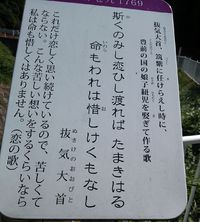 1769
抜気大首、筑紫に任けらえし時に、
豊前の国の娘子紐児を娶ぎて作る歌
斯くのみし恋ひし渡れば たまきはる
命もわれは惜しけくもなし
いのち
ぬきけのおおびと
抜気大首
これだけ恋しく思い続けているので、苦しくて
ならない。こんな苦しい想いをするくらいなら
私は命も惜しくはありません。(恋の歌)